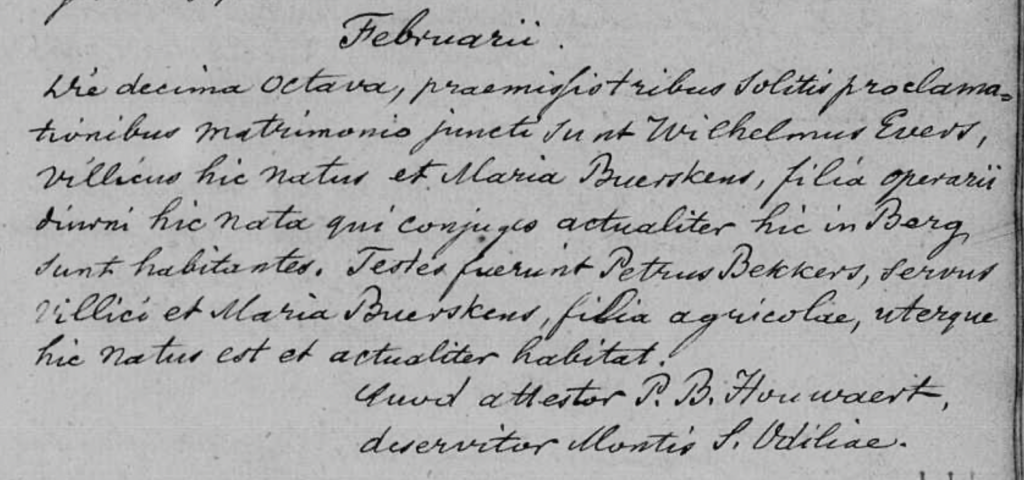 Februarii.
Die decima octava, praemissis tribus solitis proclama=
tionibus matrimonio juncti sunt Wilhelmus Evers,
villicus hic natus et Maria Buerskens, filia operarii
diurni hic nata qui conjuges actualiter hic in Berg
sunt habitantes. Testes fuerunt Petrus Bekkers, servus
villici et Maria Buerskens, filia agricolae, uterque
hic natus est et actualiter habitat.
Quod attestor P. B. Houwaert,
deservitor Montis S. Odiliae.